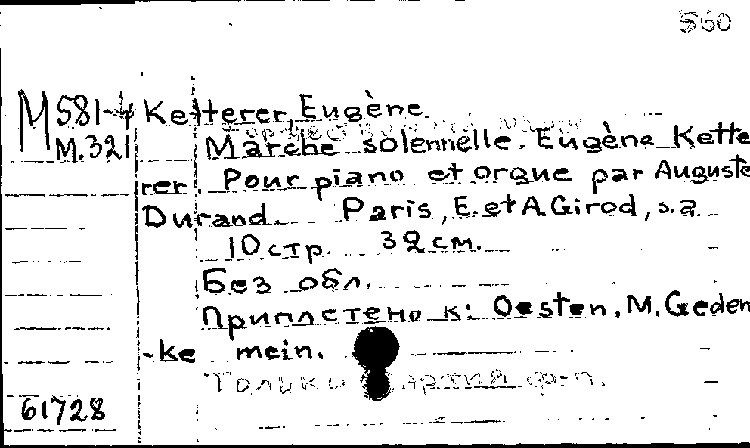 560
M 581-4 Ketterer, Eugène.
M.321 Marche solennelle. Eugène Kette
rer. Pour piano et orgue par Auguste
Durand. Paris, E. et A. Girod, s.a
10 стр. 32 см.
Без обл.
Приплетено к: Oesten, M. Geden
-ke mein.
Только партия ф-п.
61728